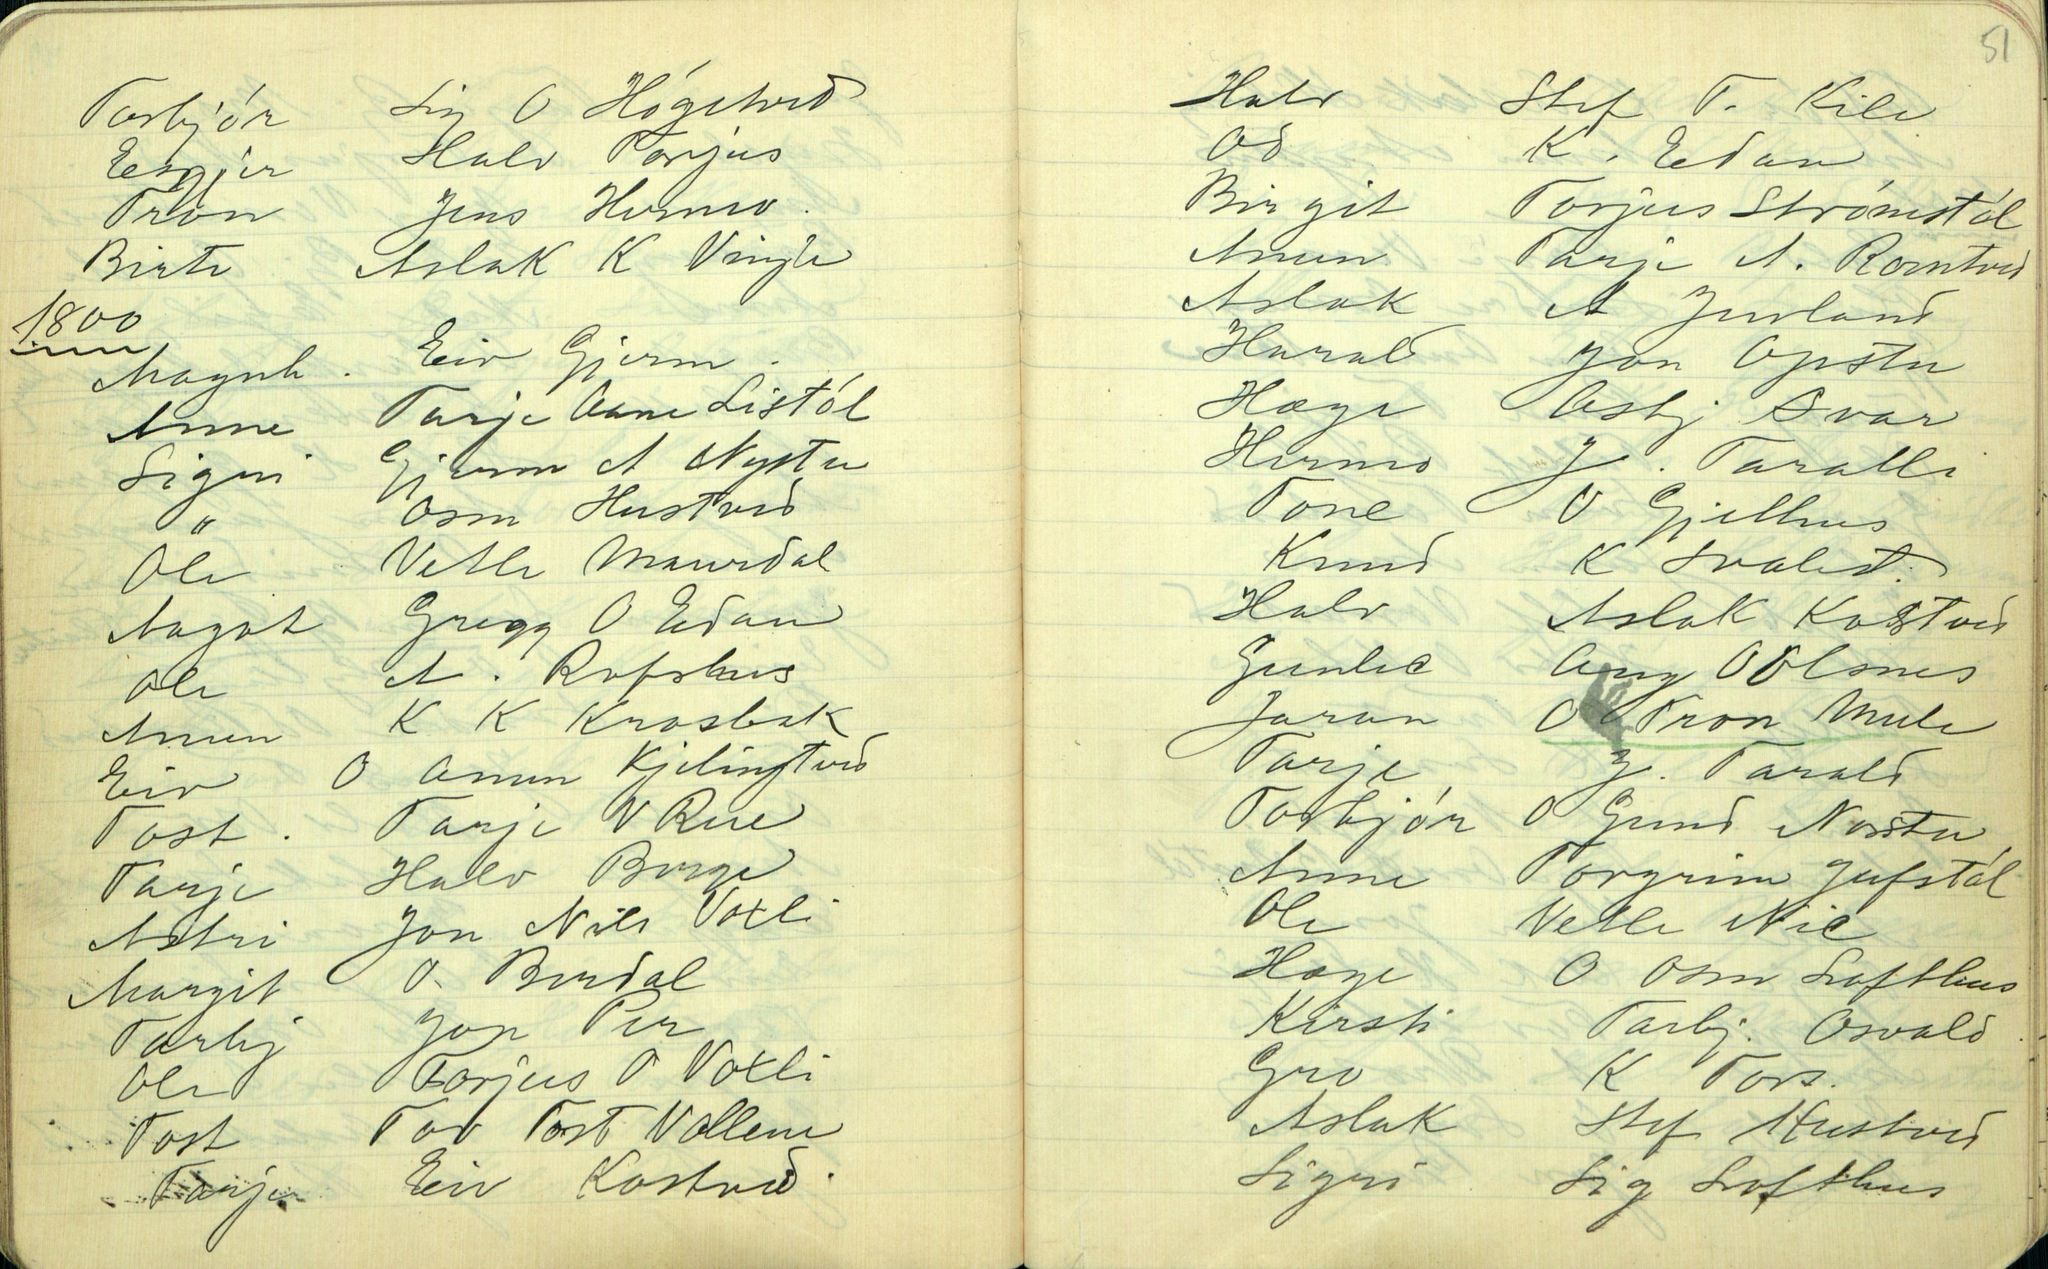 Torbjór Sig O Hógetved
Eezjer Halv Torjus
Tron Jens Hermo.
Birte Aslak K Vinje
1800
Magnh. Eiv Gjerm.
Anne Tarje Aane Listól
Sigri Gjerm A Nystu
" Osm Hustved
Ole Vetle Maurdal
Aagot Gregg O Edan
Ole A. Rofshus
Amun K K Krosbak
Eiv O Amun Kjelingtved
Tost. Tarje V Rue
Tarje Halv Berge
Astri Jon Nils Voxli
Margit O. Berdal
Tarbj Jon Per
Ole Torjus O Voxli
Tost Tov Tost Vollene
Tarje Eiv Kostved.
51
Halv Stef T. Kile
Od K. Edan
Birgit Torjus Strómstól
Amun Tarje A. Romtved
Aslak A Jurland
Harald Jon Opstu
Hæge Asbj Svar
Hermo J. Taralli
Tone O Gjelhus
Knud K Svalest.
Halv Aslak Kostved
Gunlec Aug O Olsnes
Joran O Tron Mule
Tarje J. Tarald
Torbjór O Gund Norstu
Anne Torgrim Jufstól
Ole Vetle Nie
Hæge O Osm Lofthus
Kirsti Tarbj. Osvald
Gro K Tors.
Aslak Stef Hustved
Sigri Sig Lofthus